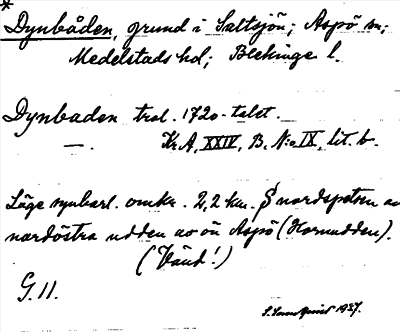 *
Dynbåden, grund i Saltsjön; Aspö sn;
Medelstads hd; Blekinge l.
Dynbaden trol. 1720-talet.
— . Kr. A, XXIV, B. N:o IX, lit. b.
Läge synbarl. omkr. 2,2 km. § nordspetsen av
nordöstra udden av ön Aspö (Hornudden).
(Vänd!)
G. 11.
1937.